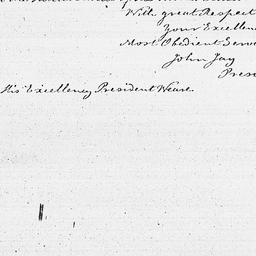 With great Respect
Your Excellen
Most Obedient Serva
John Jay
Presi
His Excellency President Weare.